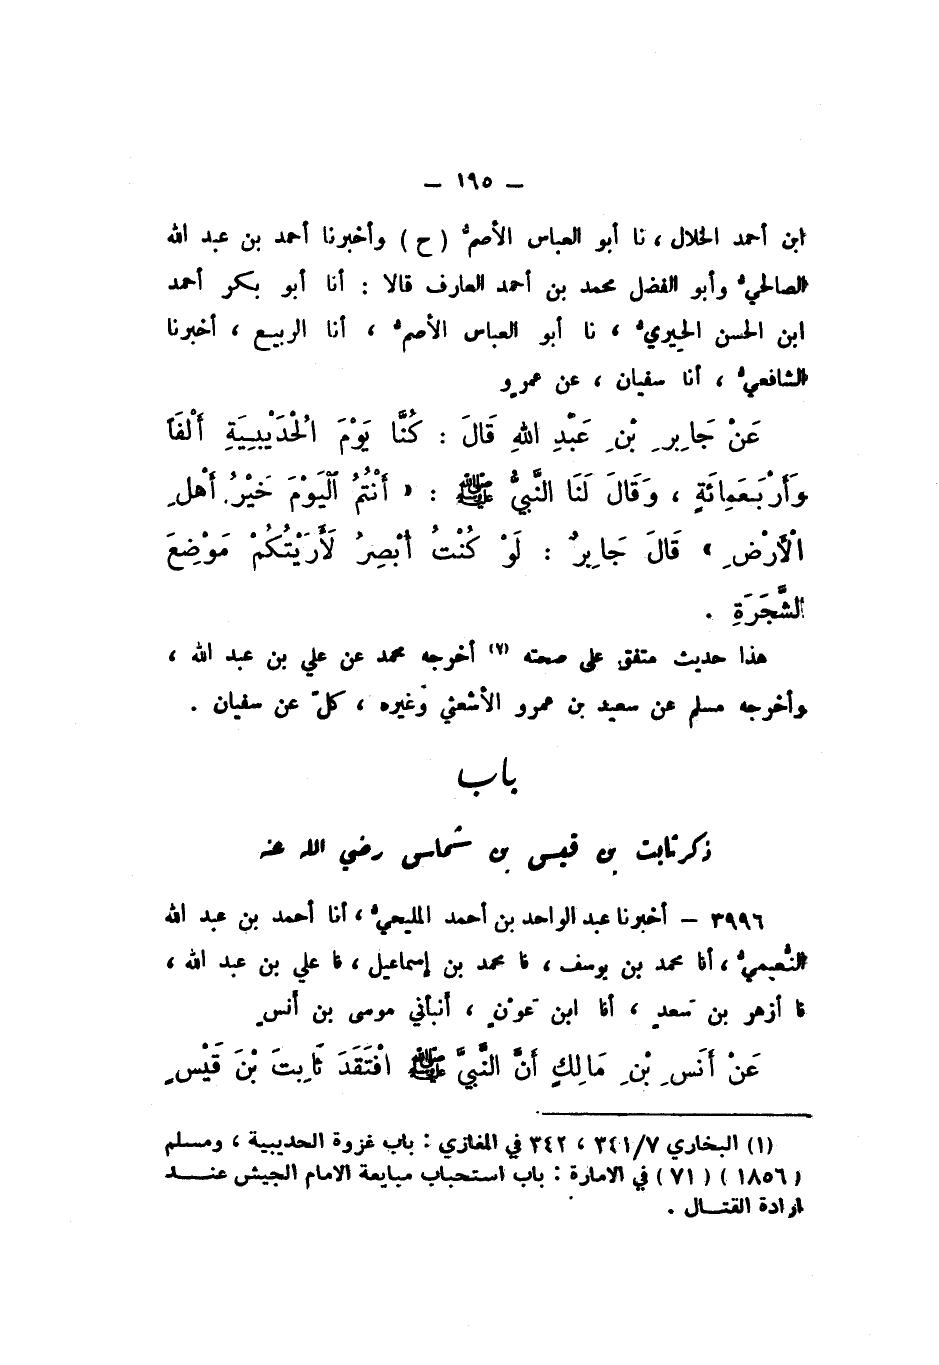 — ١٩٥ —
ابن أحمد الخلال ، نا أبو العباس الأصمُّ ( ح ) وأخبرنا أحمد بن عبد الله
الصالحيُّ وأبو الفضل محمد بن أحمد العارف قالا : أنا أبو بكر أحمد
ابن الحسن الحِيري ، نا أبو العباس الأصم ، أنا الربيع ، أخبرنا
الشافعي ، أنا سفيان ، عن عمرٍو
عَنْ جَابِرِ بْنِ عَبْدِ اللهِ قَالَ : كُنَّا يَوْمَ الْحُدَيْبِيَةِ أَلْفَاً
وَأَرْبَعَمِائَةٍ ، وَقَالَ لَنَا النَّبِيُّ ﷺ : « أَنْتُمُ الْيَوْمَ خَيْرُ أَهْلِ
الْأَرْضِ » قَالَ جَابِرٌ : لَوْ كُنْتُ أُبْصِرُ لَأَرَيْتُكُمْ مَوْضِعَ
الشَّجَرَةِ .
هذا حديث متفق على صحته (٧) أخرجه محمد عن علي بن عبد الله ،
وأخرجه مسلم عن سعيد بن عمرو الأشعثي وغيره ، كلٌّ عن سفيان .
باب
ذكر ثابت بن قيس بن شماس رضي الله عنه
٣٩٩٦ — أخبرنا عبد الواحد بن أحمد المليحي ، أنا أحمد بن عبد الله
النُّعيمي ، أنا محمد بن يوسف ، نا محمد بن إسماعيل ، نا علي بن عبد الله ،
نا أزهر بن سَعدٍ ، أنا ابن عَوْنٍ ، أنبأني موسى بن أنسٍ
عَنْ أَنَسِ بْنِ مَالِكٍ أَنَّ النَّبِيَّ ﷺ افْتَقَدَ ثَابِتَ بْنَ قَيْسٍ
(١) البخاري ٣٤١/٧ ، ٣٤٢ في المغازي : باب غزوة الحديبية ، ومسلم
( ١٨٥٦ ) ( ٧١ ) في الامارة : باب استحباب مبايعة الامام الجيش عنـــد
ارادة القتـــال .